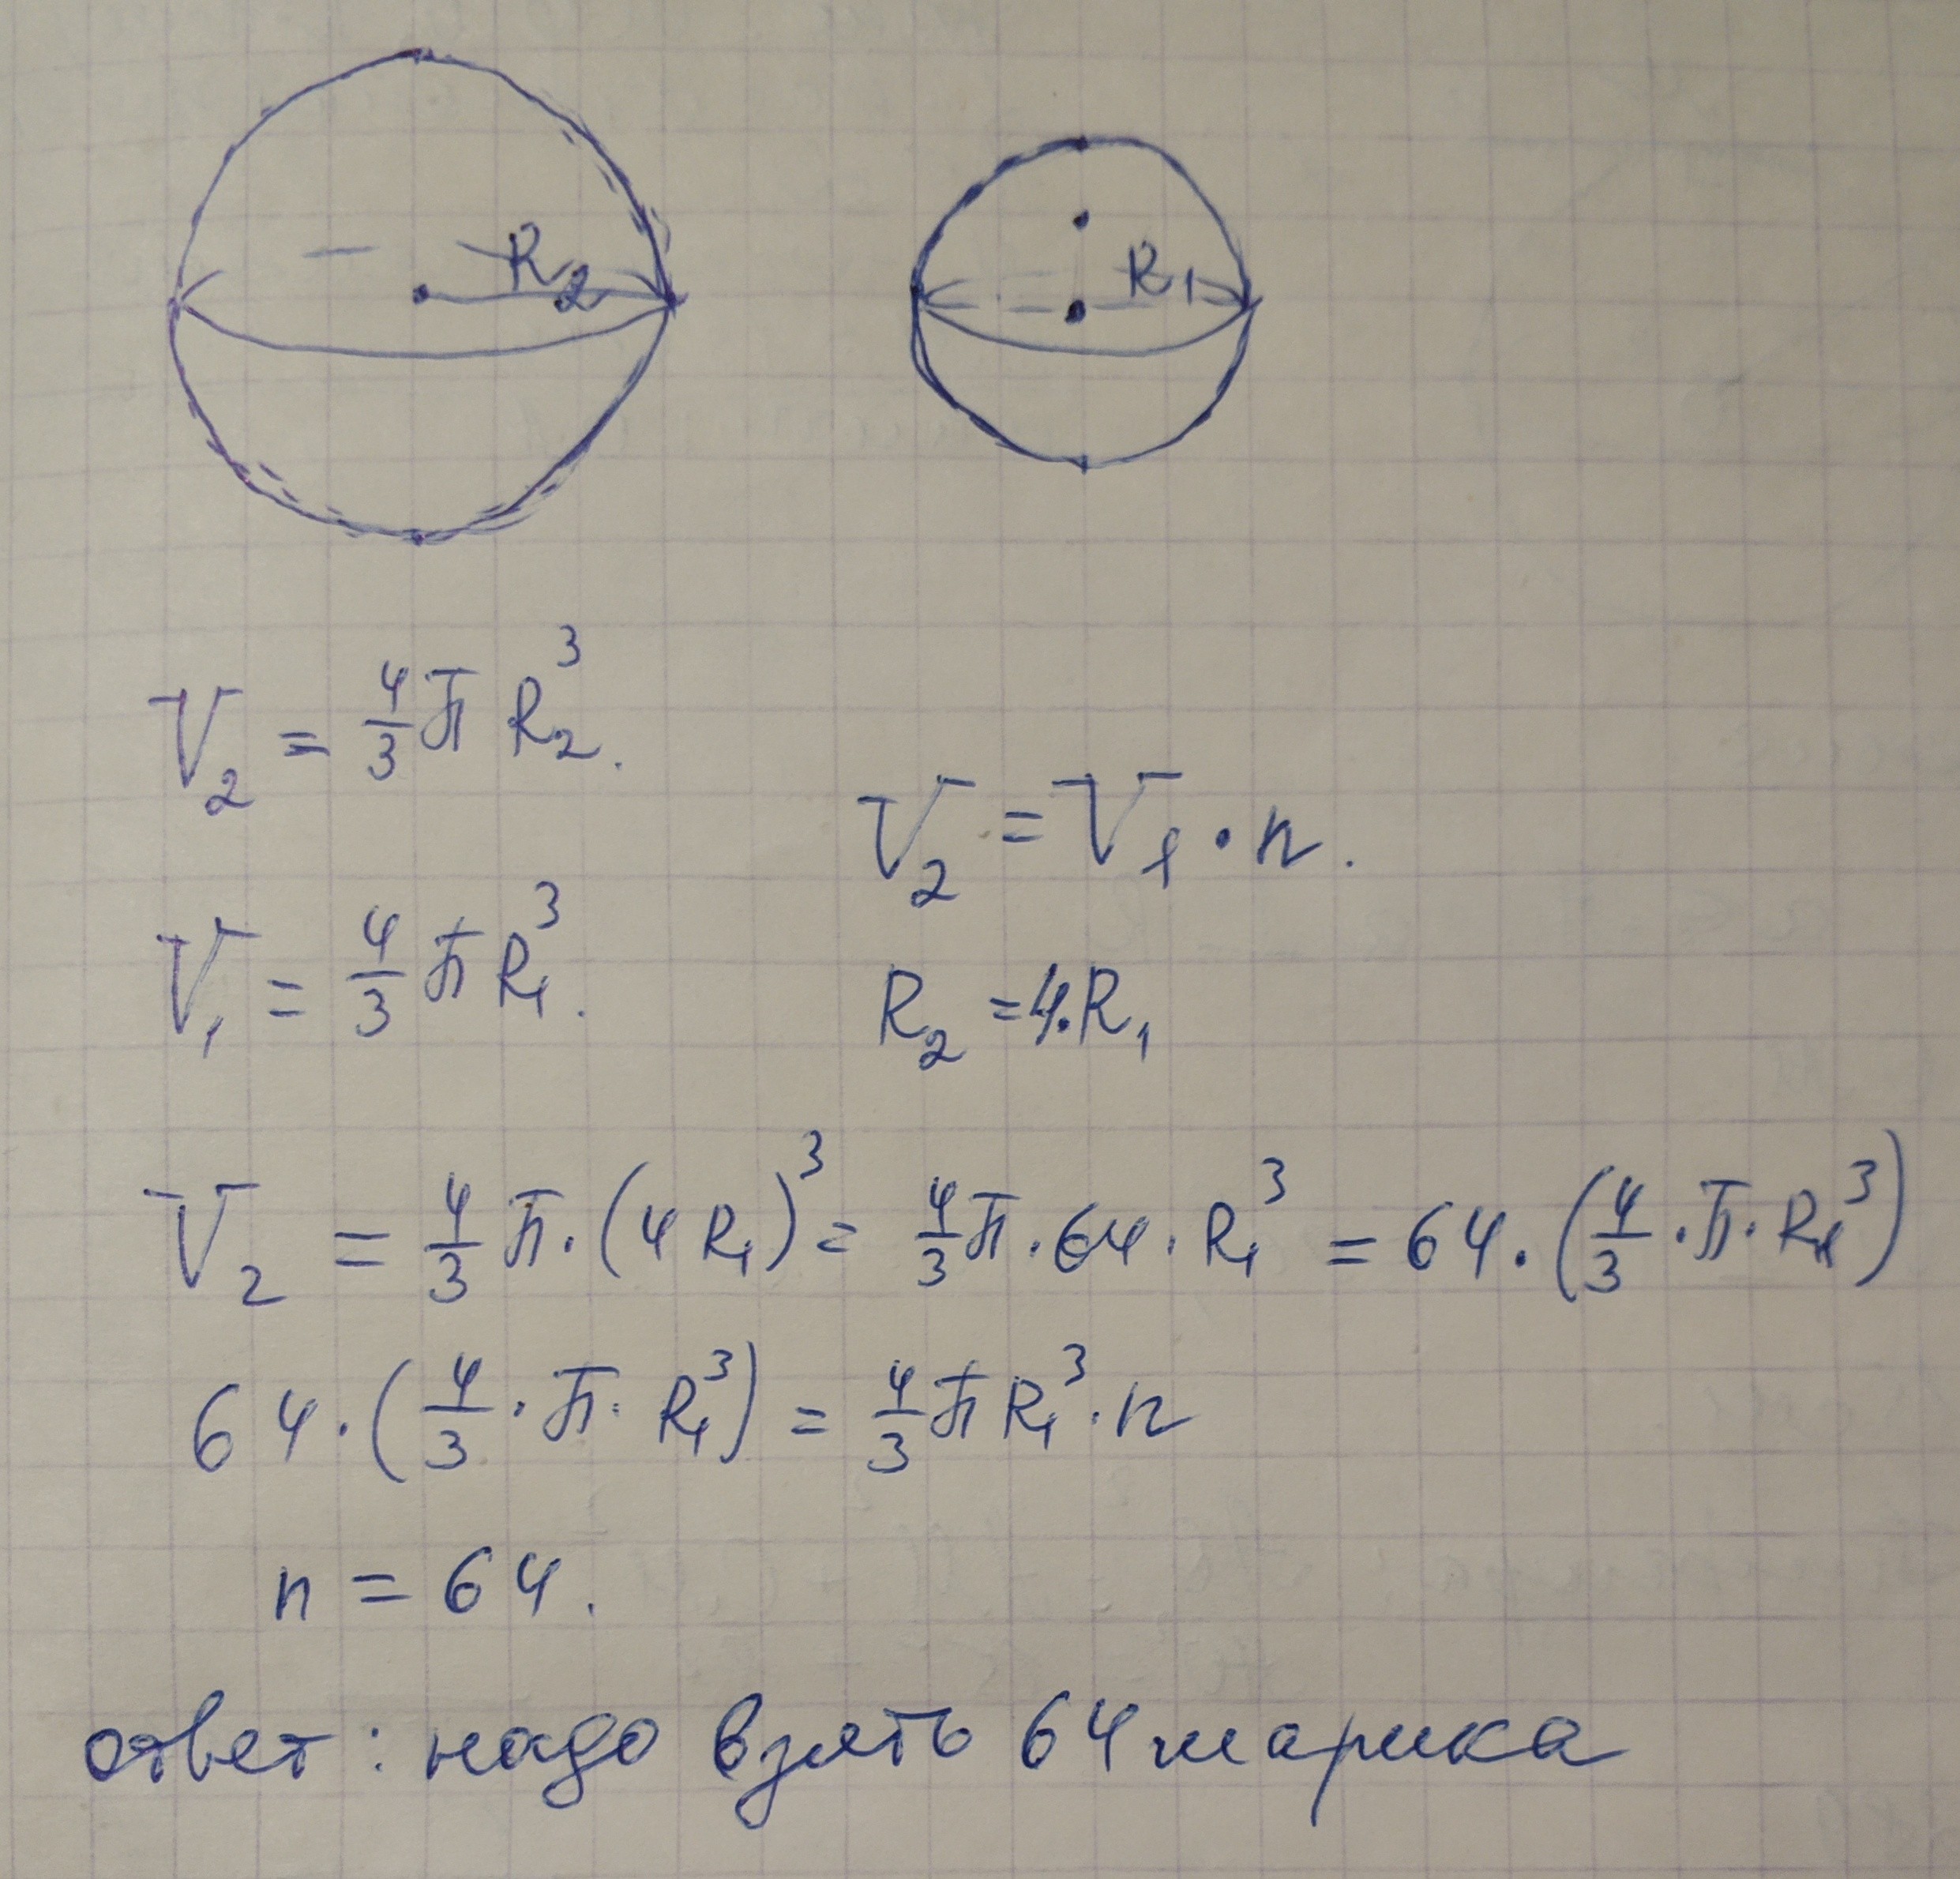 R₂
R₁
V₂ = 4/3 π R₂³.
V₂ = V₁ · n.
V₁ = 4/3 π R₁³.
R₂ = 4·R₁
V₂ = 4/3 π · (4 R₁)³ = 4/3 π · 64 · R₁³ = 64 · (4/3 · π · R₁³)
64 · (4/3 · π · R₁³) = 4/3 π R₁³ · n
n = 64.
ответ: надо взять 64 шарика